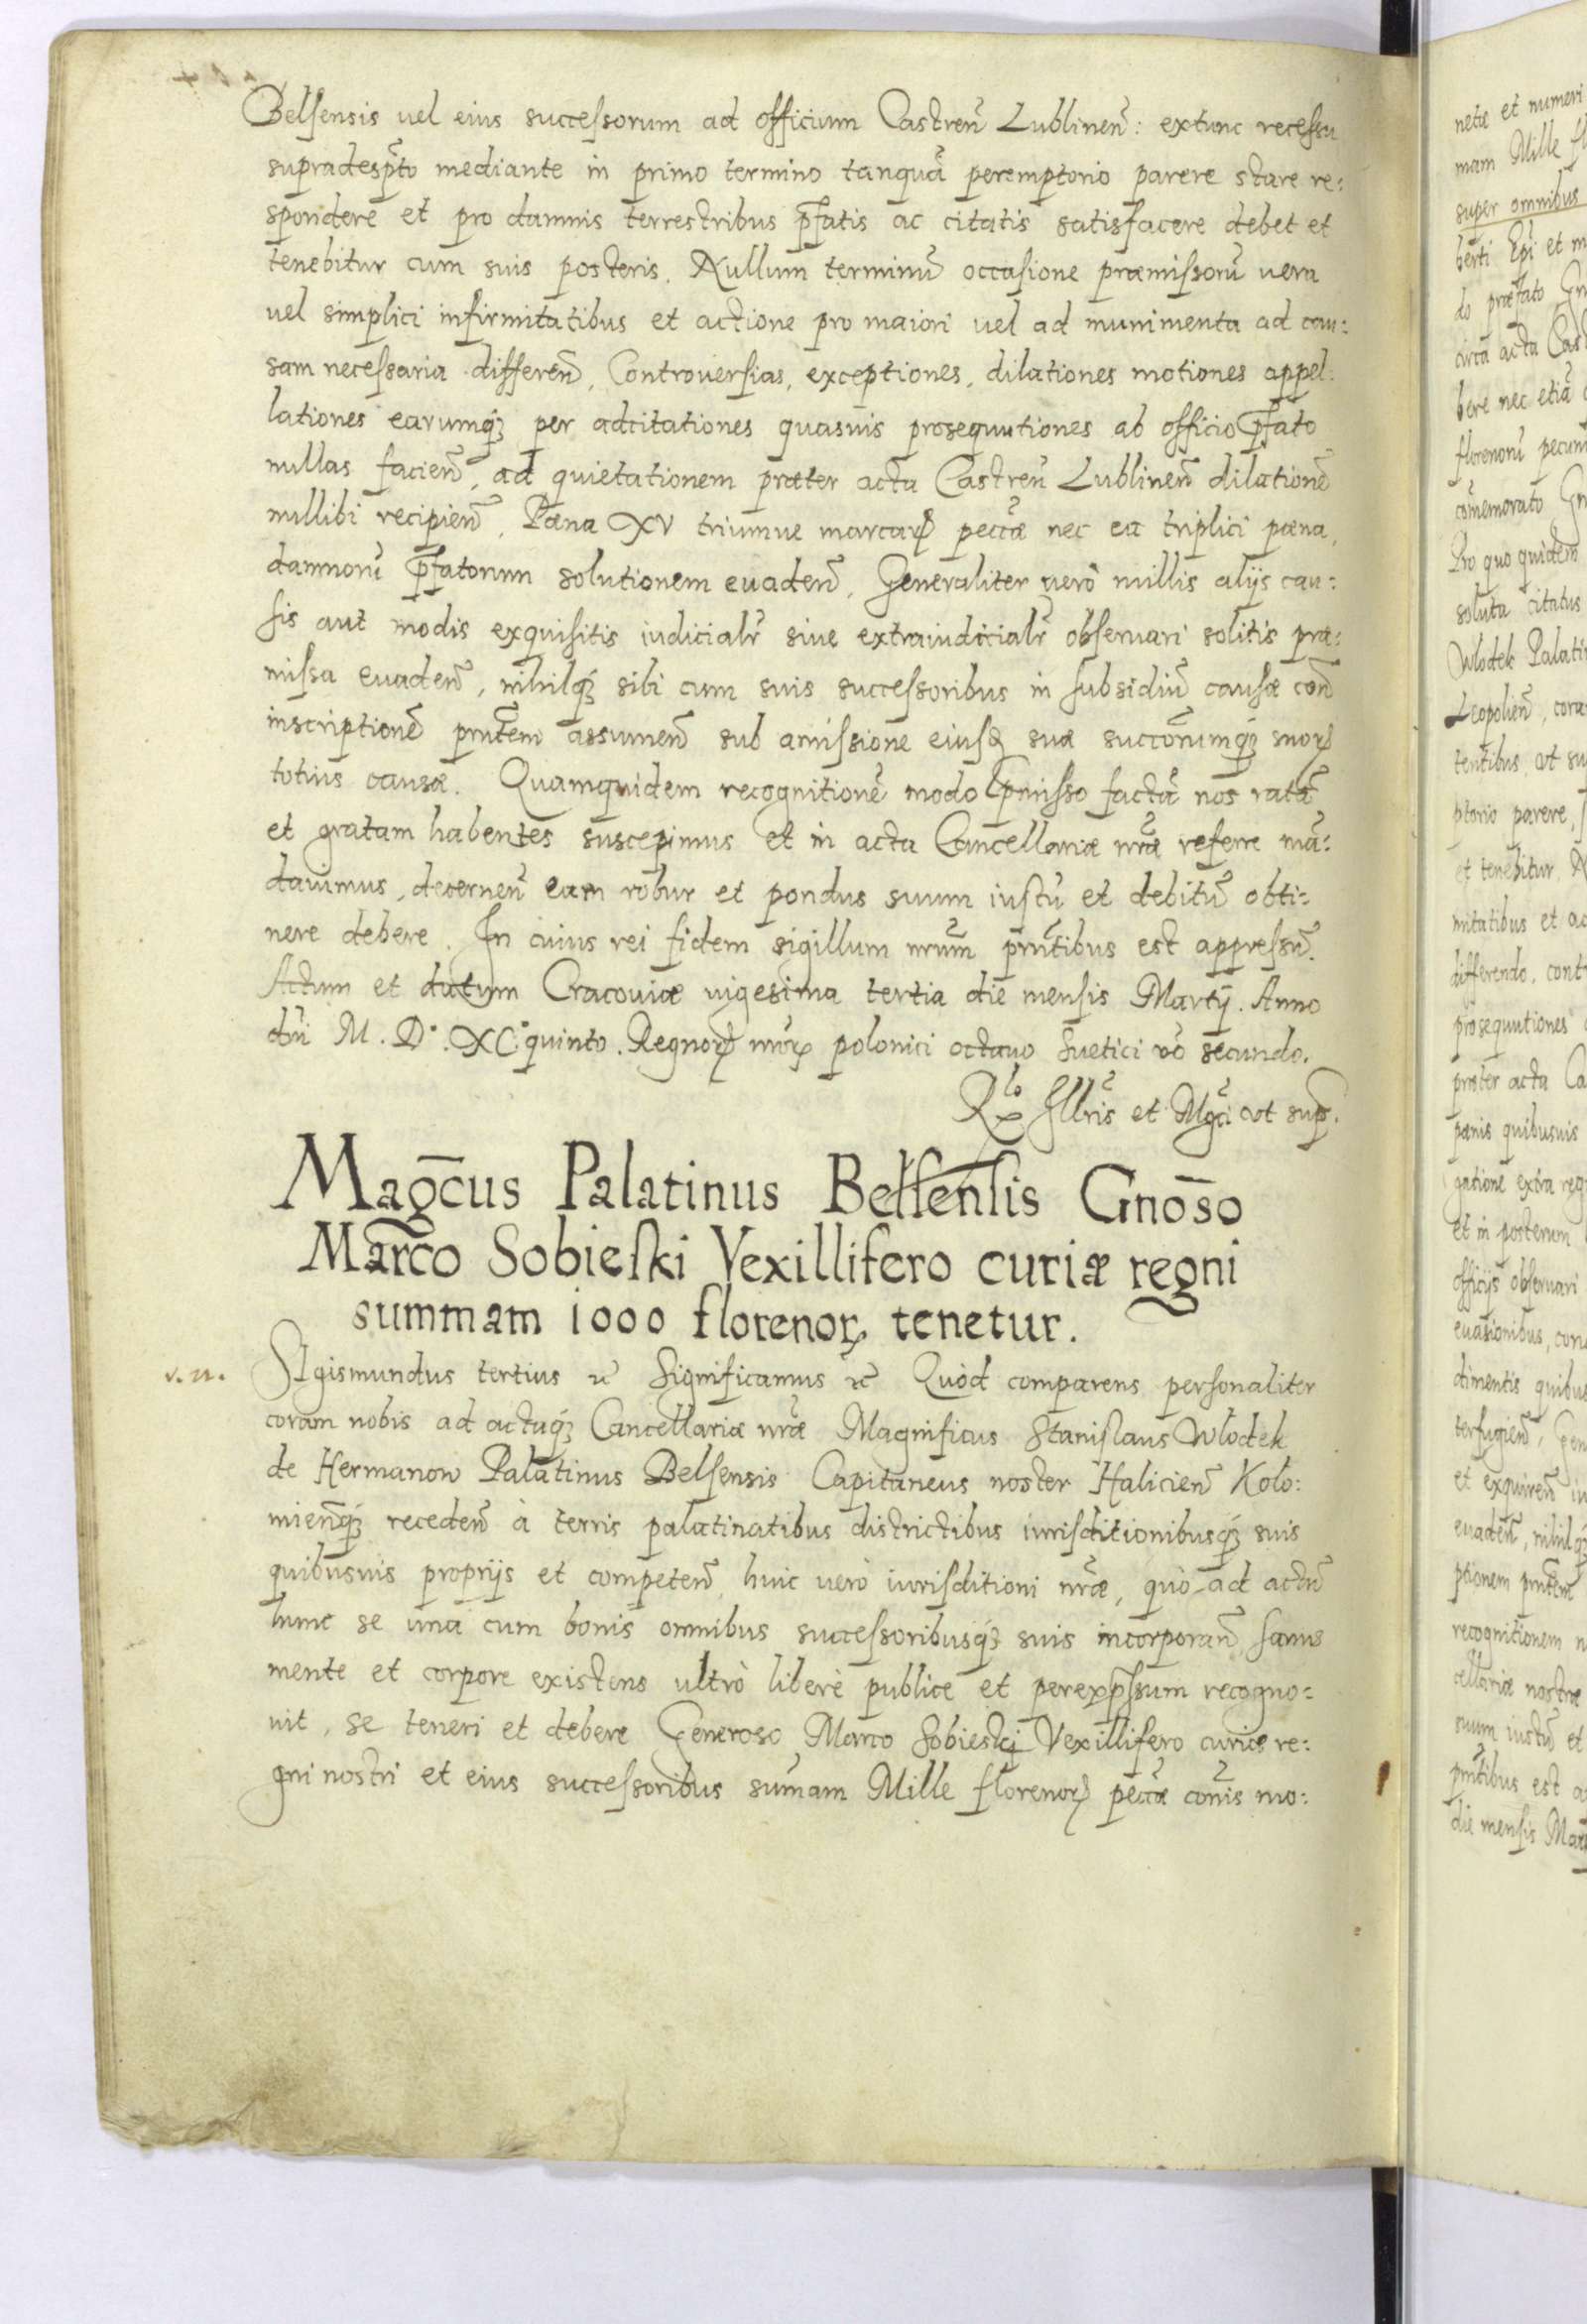 Belsensis uel eius successorum ad officium Castren̄ Lublinen̄: extunc recessu
supradesp̄to mediante in primo termino tanquā peremptorio parere stare re:
spondere et pro damnis terrestribus p̄fatis ac citatis satisfacere debet et
tenebitur cum suis posteris. Nullum terminū occasione præmissorū uera
uel simplici infirmitatibus et actione pro maiori uel ad munimenta ad cau:
sam necessaria differen̄, Controuersias, exceptiones, dilationes motiones appel:
lationes earumqȝ per adcitationes quasuis prosequutiones ab officio p̄fato
nullas facien̄, ad quietationem præter acta Castren̄ Lublinen̄ dilationē
nullibi recipien̄, Pæna XV triumue marcarꝝ peccæ nec ea triplici pæna,
damnorū p̄fatorum solutionem euaden̄, Generaliter uerò nullis alijs cau:
sis aut modis exquisitis iudicialr̄ siue extraiudicialr̄ obseruari solitis præ:
missa euaden̄, nihilqȝ sibi cum suis successoribus in subsidiū causæ con̄
inscriptionē pn̄tem assumen̄ sub amissione eiusꝗ suæ succōrumqȝ suorꝝ
totius causæ. Quamquidem recognitionē modo p̄misso factā nos ratā
et gratam habentes suscepimus et in acta Cancellariæ nr̄æ referre mā:
dauimus, decernen̄ eam robur et pondus suum iustū et debitū obti:
nere debere. In cuius rei fidem sigillum nr̄um pn̄tibus est appressū.
Actum et datum Cracouiæ uigesima tertia die mensis Martij. Anno
dn̄i M. D°. XC° quinto. Regnorꝝ nr̄orꝝ polonici octauo Suetici vō secundo.
Rlo Illris et Mgci vt sup̄.
Magc̄us Palatinus Belsensis Gnōso
Marco Sobieski Vexillifero curiæ regni
summam 1000 florenorꝝ tenetur.
v. n. SIgismundus tertius ꝛc̄ Significamus ꝛc̄ Quòd comparens personaliter
coram nobis ad actaqȝ Cancellariæ nr̄æ Magnificus Stanislaus Wlodek
de Hermanow Palatinus Belsensis Capitaneus noster Halicien̄ Kolo:
mien̄qȝ receden̄ à terris palatinatibus districtibus iurisditionibusqȝ suis
quibusuis proprijs et competen̄, huic uerò iurisditioni nr̄æ, quò ad actū
hunc se unà cum bonis omnibus successoribusqȝ suis incorporan̄, sanus
mente et corpore existens ultrò liberè publice et perexp̄ssum recogno:
uit, se teneri et debere Generoso Marco Sobieski Vexillifero curiæ re:
gni nostri et eius successoribus sum̄am Mille florenorꝝ peccæ cōnis mo: